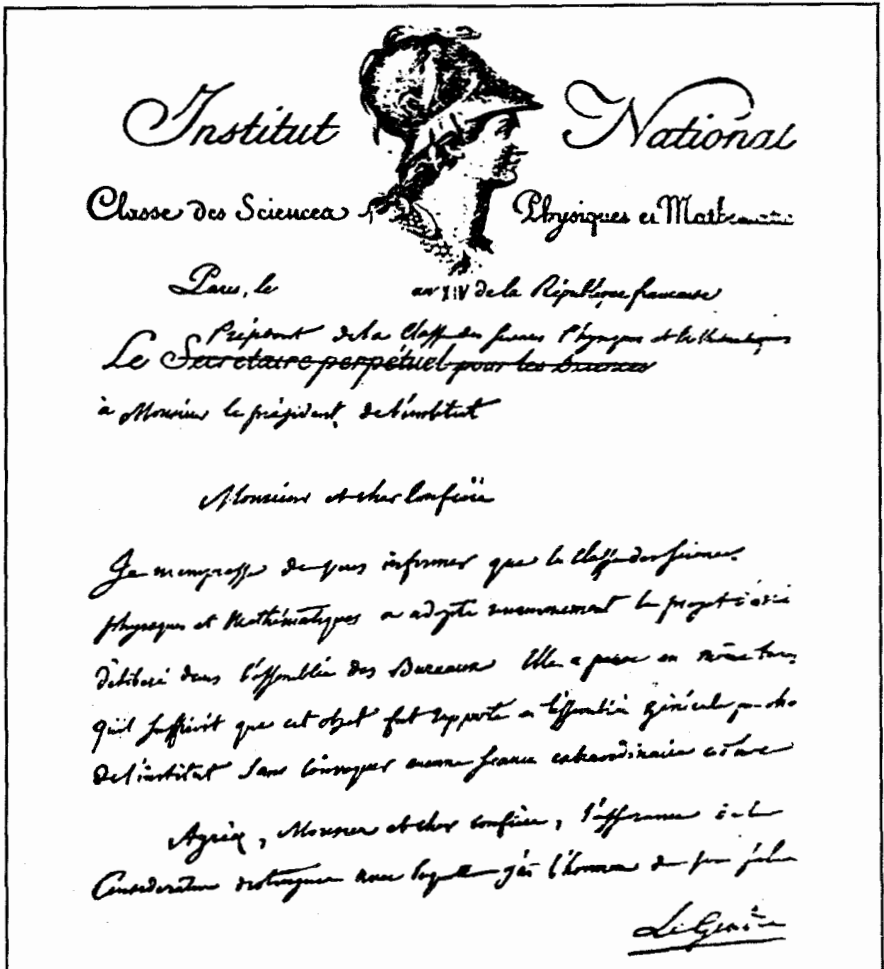 Institut National
Classe des Sciences Physiques et Math
Paris, le an XIV de la République francaise
Président de la Classe des Sciences Physiques et Mathématiques
Le Secrétaire perpétuel pour les Sciences
à Monsieur le président de l'institut
Monsieur et cher Confrère
Je m'empresse de vous informer que la Classe des Sciences
physiques et Mathématiques a adopté unanimement le projet
délibéré dans l'assemblée des Bureaux Elle a pensé en même tems
qu'il suffiroit que cet objet fut rapporté à l'assemblée générale
de l'institut sans convoquer aucune séance extraordinaire
Agréez, Monsieur et cher confrère, l'assurance de la
Consideration distinguée avec laquelle j'ai l'honneur de